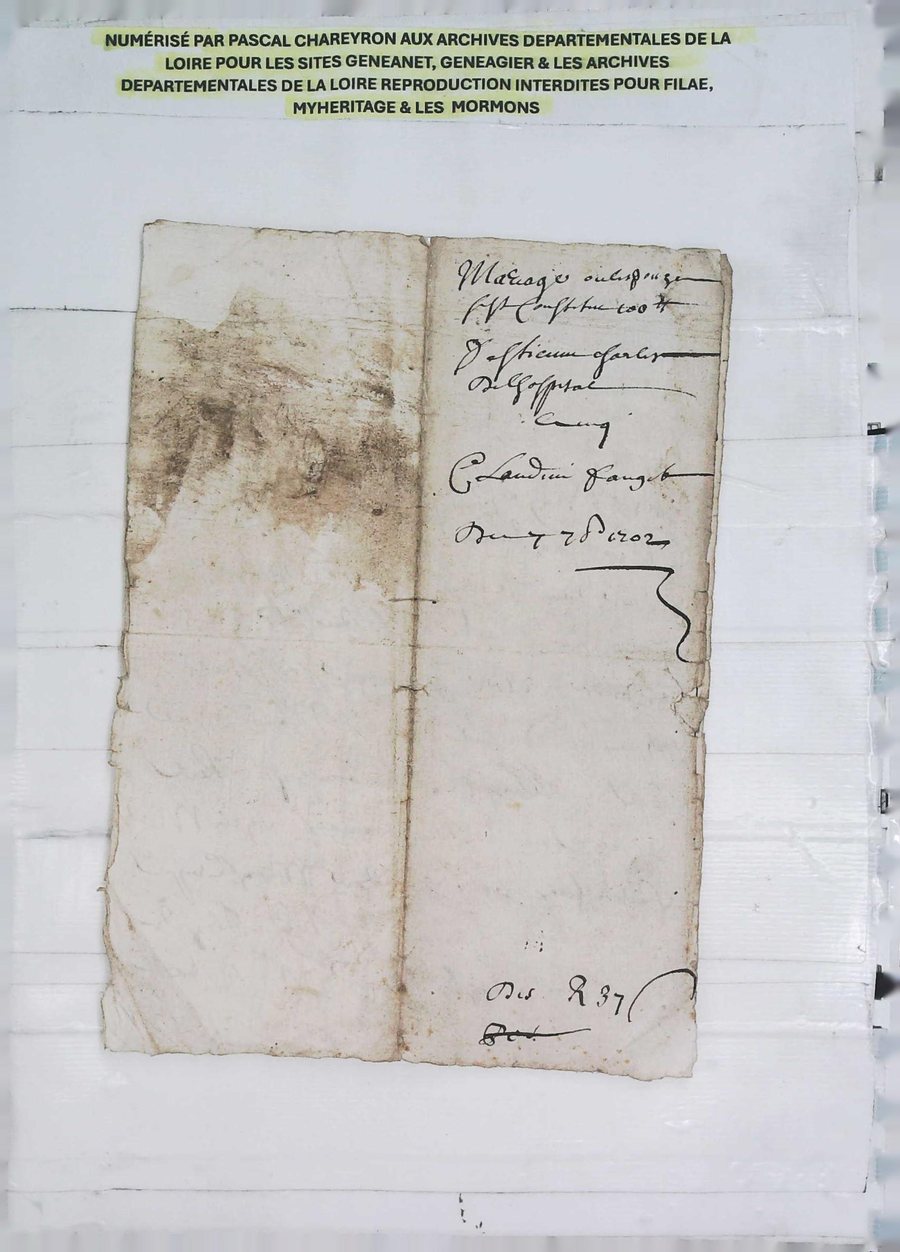 NUMÉRISÉ PAR PASCAL CHAREYRON AUX ARCHIVES DEPARTEMENTALES DE LA
LOIRE POUR LES SITES GENEANET, GENEAGIER & LES ARCHIVES
DEPARTEMENTALES DE LA LOIRE REPRODUCTION INTERDITES POUR FILAE,
MYHERITAGE & LES MORMONS
Mariage
sest Constitue 100 ₶
D'estienne charles
Delhospital
Claudine fanget
Du 7 7b 1702
Des R 37